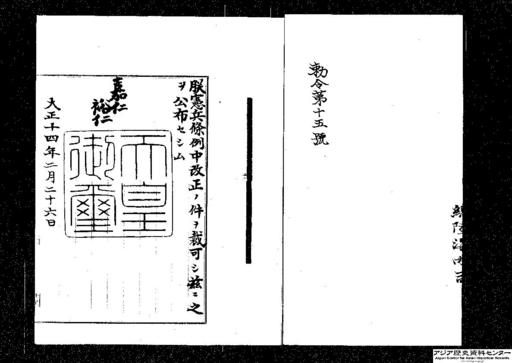 勅令第十五號
朕憲兵條例中改正ノ件ヲ裁可シ玆ニ之
ヲ公布セシム
嘉仁
裕仁
天皇
御璽
大正十四年二月二十六日
アジア歴史資料センター
Japan Center for Asian Historical Records